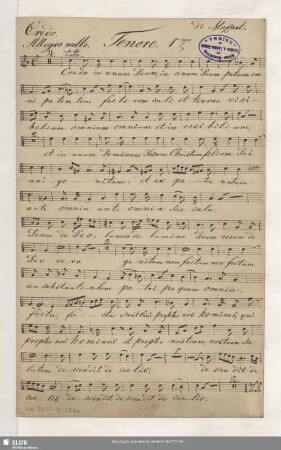 Credo.
di Mozart.
Allegro molto.
Tenore. 1mo
Tutti
Credo in unum Deum in unum Deum patrem om
ni potentem factorem coeli et terrae visi-
bilium omnium omnium et in visi bilium,
et in unum Dominum Jesum Christum filium Dei
uni ge nitum, et ex pa tre natum
ante omnia ante omnia sae cula,
Deum de Deo, lumen de lumine Deum verum de
Deo vero ge nitum non factum non factum
con substanti alem pa tri per quem omnia,
facta fa cta propter nos homines, qui
propter nos homines et propter nostram, nostram sa
lutem de scendit de coe lis, de scen dit de
coe lis de scendit de scendit de coe lis.
SLUB